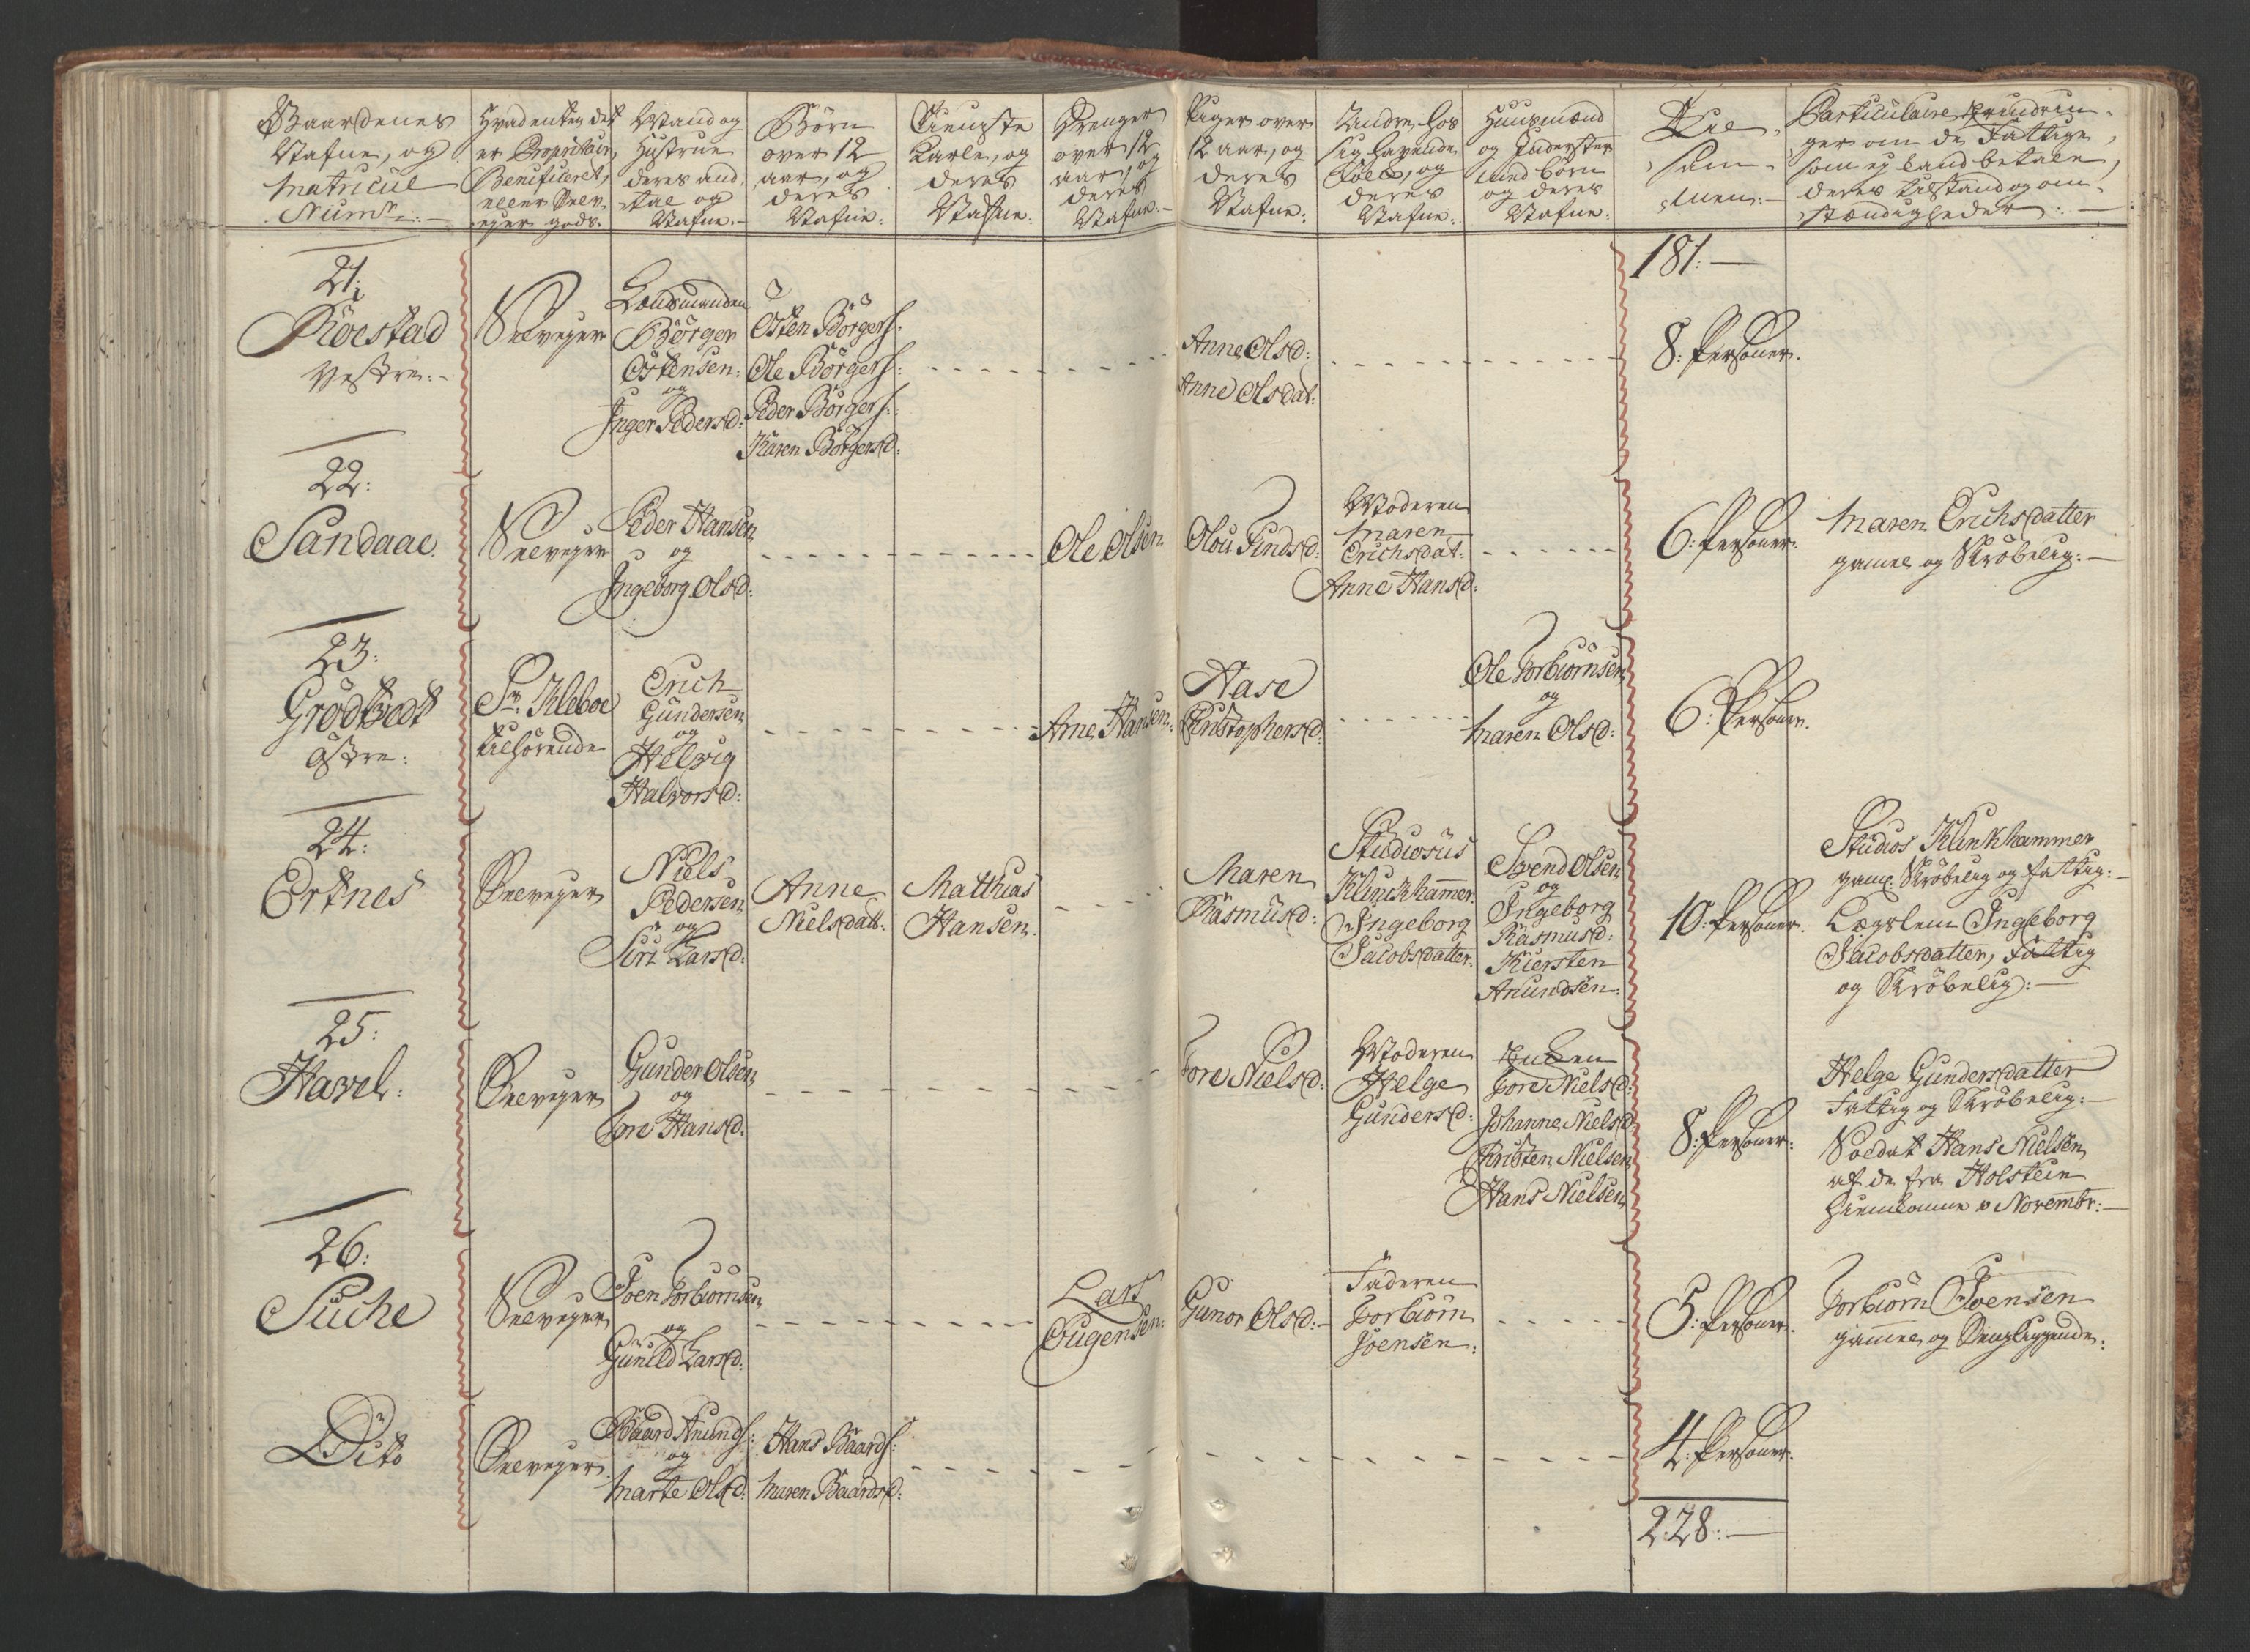 Gaardenes
Nafne, og
Matricul
Numr:
Hvad enten det
er Proprietair,
Beneficeret,
eller Selv-
eyer gods.
Mand og
Hustrue
deres and-
tal og
Nafne.
Børn
over 12
aar, og
deres
Nafne:
Tieneste
Karle, og
deres
Nafne:
Drenger
over 12
aar, og
deres
Nafne.
Piger over
12 aar, og
deres
Nafne:
Andre hos
sig havende
Folk, og
deres
Nafne:
Huusmænd
og Inderster
med børn
og deres
Nafne:
Til-
sam-
men:
Particulaire Erindrin-
ger om de Fattige,
som ej kand betale,
deres tilstand og om-
stændigheder:
181:
21:
Røestad
Vestre:
Selveyer
Lensmanden
Börger
Östensen:
og
Inger Pedersd:
Östen Börgers:
Ole Börgers:
Peder Börgers:
Karen Börgersd:
Anne Olsd:
Anne Olsdat:
8: Personer.
22:
Sandaae
Selveyer
Peder Hansen
og
Ingeborg Olsd:
Ole Olsen
Olou Findsd:
Moderen
Maren
Erichsdat:
Anne Hansd:
6: Personer.
Maren Erichsdatter
gamel og Skröbelig:
23:
Grödtvedt
östre:
Sr. Kleboe
tilhörende
Erich
Gundersen
og
Helvig
Halvorsd:
Arne Hansen
Aase
Christophersd:
Ole Torbiörnsen
og
Maren Olsd:
6: Personer.
24:
Ertnes
Selveyer
Niels
Pedersen
og
Siri Larsd:
Anne
Nielsdatt:
Matthias
Hansen.
Maren
Rasmusd:
Studiosus
Klinckhamer.
Ingeborg
Jacobsdatter.
Svend Olsen
og
Ingeborg
Rasmusd:
Kiersten
Anundsen:
10: Personer.
Studios Klinkhammer
gamel Skröbelig og fattig:
Lægslem Ingeborg
Jacobsdatter, fattig
og Skröbelig:
25:
Havel:
Selveyer
Gunder Olsen
og
Tore Hansd:
Tore Nielsd:
Moderen
Helge
Gundersd:
Enken
Tore Nielsd:
Johanne Nielsd:
Kristen Nielsen
Hans Nielsen
8: Personer:
Helge Gundersdatter
Fattig og Skröbelig:
Soldat Hans Nielsen
af de fra Holsteen
hiemkomne Novembr:
26:
Suche
Selveyer
Joen Torbiörnsen
og
Gunild Larsd:
Lars
Eugensen:
Gunor Olsd:
Faderen
Torbiörn
Joensen:
5: Personer.
Torbiörn Joensen
gammel og Sengliggende:
Dito
Selveyer.
Baard Anunds:
og
Marte Olsd:
Hans Baards:
Maren Baardsd:
4: Personer.
228: